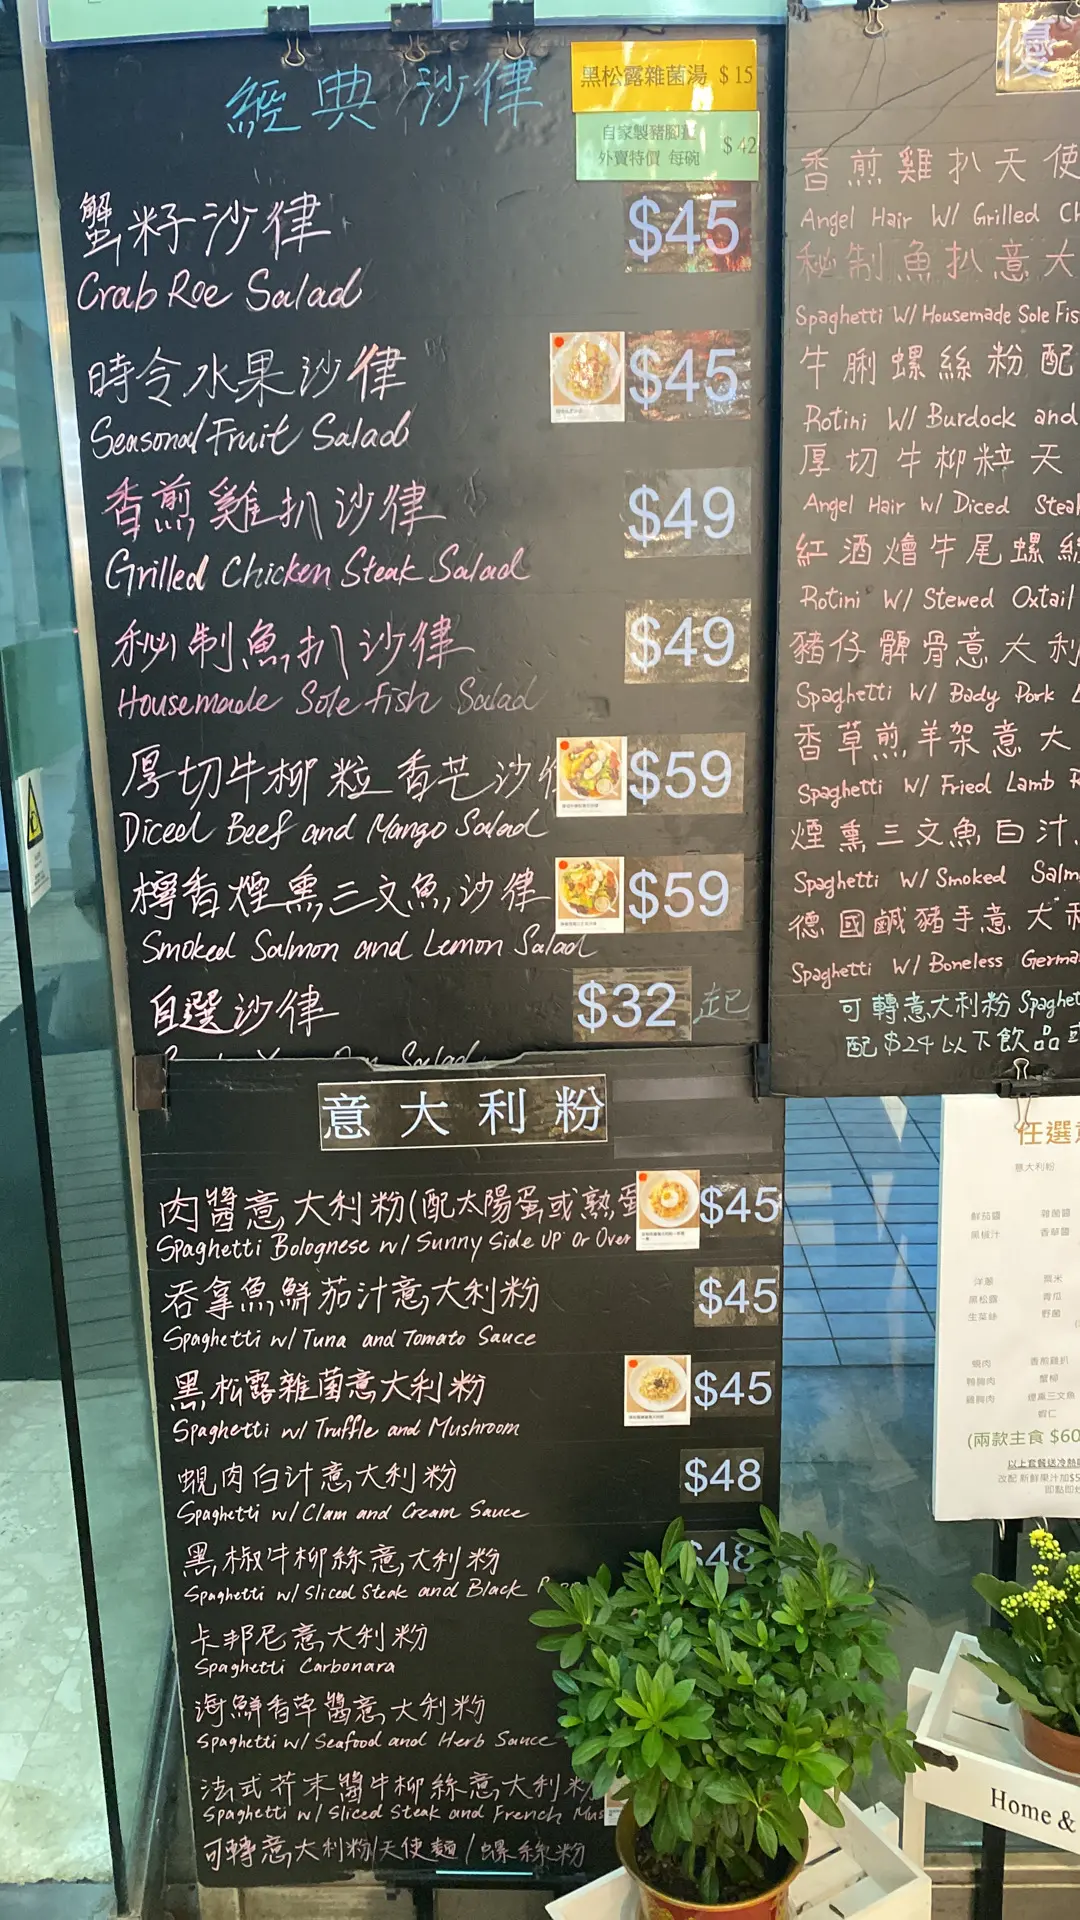 經典沙律
黑松露雜菌湯 $15
自家製豬腳
外賣特價 每碗 $42
蟹籽沙律 $45
Crab Roe Salad
時令水果沙律 $45
Seasonal Fruit Salad
香煎雞扒沙律 $49
Grilled Chicken Steak Salad
秘制魚扒沙律 $49
Housemade Sole Fish Salad
厚切牛柳粒香芒沙 $59
Diced Beef and Mango Salad
檸香煙熏三文魚沙律 $59
Smoked Salmon and Lemon Salad
自選沙律 $32起
Salad
意大利粉
肉醬意大利粉(配太陽蛋或熟蛋 $45
Spaghetti Bolognese w/ Sunny Side UP Or Over
吞拿魚鮮茄汁意大利粉 $45
Spaghetti w/ Tuna and Tomato Sauce
黑松露雜菌意大利粉 $45
Spaghetti w/ Truffle and Mushroom
蜆肉白汁意大利粉 $48
Spaghetti w/ Clam and Cream Sauce
黑椒牛柳絲意大利粉 $48
Spaghetti w/ Sliced Steak and Black
卡邦尼意大利粉
Spaghetti Carbonara
海鮮香草醬意大利粉
Spaghetti w/ Seafood and Herb Sauce
法式芥末醬牛柳絲意大利粉
Spaghetti w/ Sliced Steak and French Mus
可轉意大利粉/天使麵/螺絲粉
優
香煎雞扒天使
Angel Hair W/ Grilled Ch
秘制魚扒意大
Spaghetti W/ Housemade Sole Fis
牛脷螺絲粉配
Rotini W/ Burdock and
厚切牛柳粒天
Angel Hair w/ Diced Steak
紅酒燴牛尾螺絲
Rotini W/ Stewed Oxtail
豬仔髀骨意大利
Spaghetti W/ Bady Pork
香草煎羊架意大
Spaghetti W/ Fried Lamb R
煙熏三文魚白汁
Spaghetti W/ Smoked Salm
德國鹹豬手意大利
Spaghetti W/ Boneless Germa
可轉意大利粉 Spaghet
配$24以下飲品或
任選
意大利粉
鮮茄醬 雜菌醬
黑椒汁 香草醬
洋蔥 粟米
黑松露 青瓜
生菜絲 野菌
蜆肉 香煎雞扒
鴨胸肉 蟹柳
雞胸肉 煙熏三文魚
蝦仁
(兩款主食 $60
以上套餐送冷熱
改配 新鮮果汁加$5
即點即
Home &